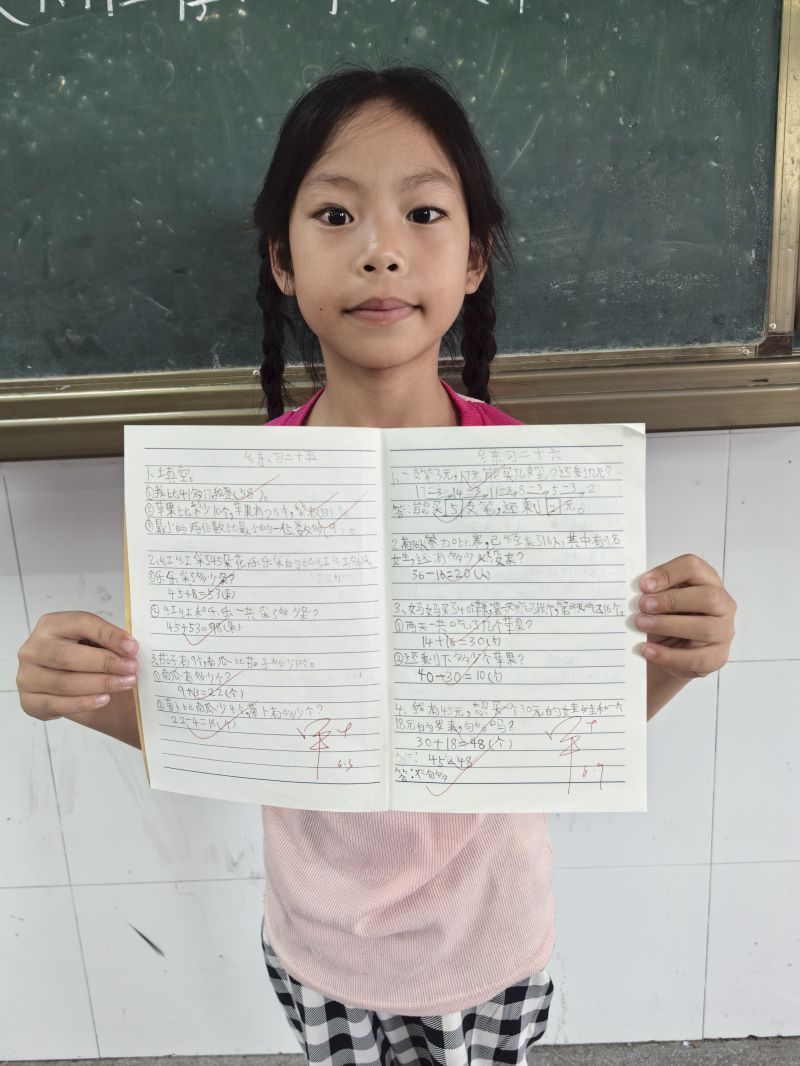 练习二十五
1、填空。
①我比41多17,我是(58)。
②苹果比梨少10个,苹果有23个,梨有(33)个。
③最小的两位数比最小的一位数多(9)。
2、红红采了45朵花,乐乐采的比红红多8朵
①乐乐采了多少朵?
45+8=53(朵)
②红红和乐乐一共采了多少朵?
45+53=98(朵)
3、茄子有9个,南瓜比茄子多13个。
①南瓜有多少个?
9+13=22(个)
②萝卜比南瓜少4个,萝卜有多少个?
22-4=18(个)
6.3
练习二十六
1、一支笔3元,17元能买几支笔?还剩几元?
17-3=14-3=11-3=8-3=5-3=2
答:能买(5)支笔,还剩(2)元。
2、有36人
其中有9名
女生,还有多少人没来?
36-16=20(人)
3、妈妈买了40个苹果,第一天吃了14个,第二天吃了16个。
①两天一共吃了几个苹果?
14+16=30(个)
②还剩下多少个苹果?
40-30=10(个)
4、我有45元,想买一个30元的娃娃和一个
18元的发夹,够吗?
30+18=48(个)
答: 45<48
答:不够
6.7